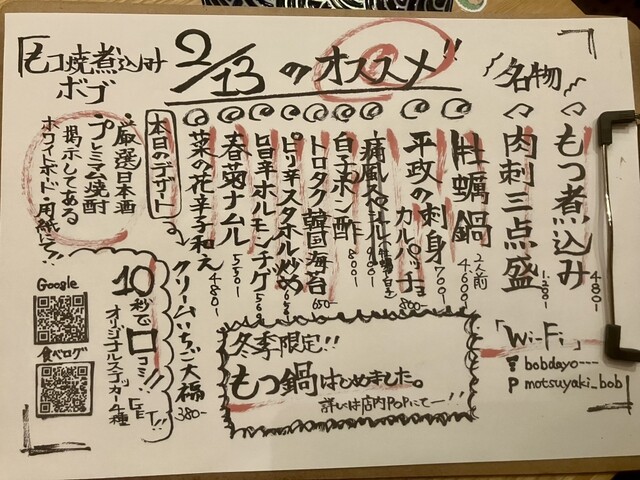 「もつ焼煮込み
ボブ
2/13のオススメ!!
名物
もつ煮込み 480-
肉刺三点盛 1.200-
牡蠣鍋 2人前 4.600-
平政の刺身 700-
カルパッチョ 800-
白子ポン酢 800-
トロタク韓国海苔 650-
ピリ辛スタホル炒め
旨辛ホルモンチゲ
春菊ナムル 550-
菜の花辛子和え 480-
本日のデザート
クリームいちご大福 380-
・厳選日本酒
・プレミアム焼酎
掲示してある
ホワイトボード・用紙にて!!
Google
食べログ
10秒で口コミ!!
オリジナルステッカー4種
GET!!
冬季限定!!
もつ鍋はじめました。
詳しくは店内POPにて―!!
「Wi-Fi」
bobdayo---
P motsuyaki_bob